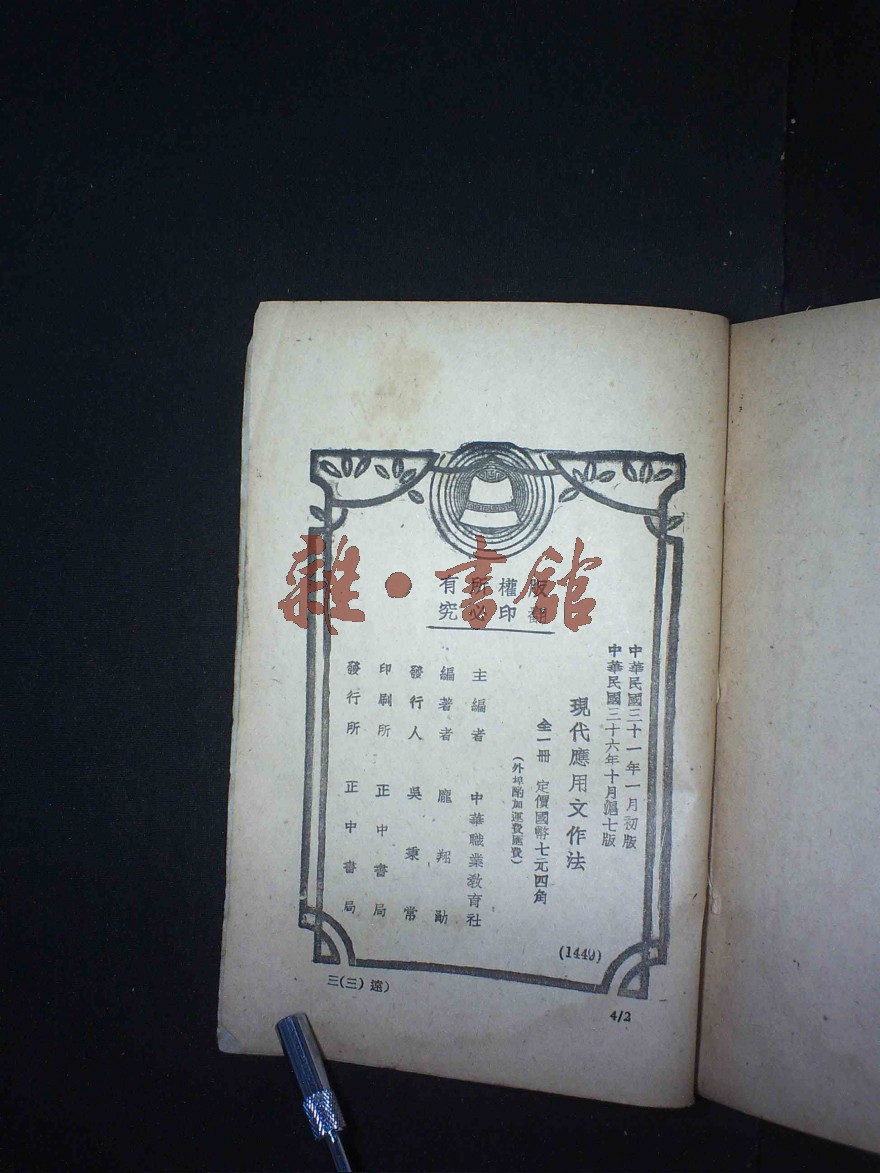 雜·書館
版權所有
翻印必究
中華民國三十一年一月初版
中華民國三十六年十月滬七版
現代應用文作法
全一冊 定價國幣七元四角
(外埠酌加運費匯費)
主編者 中華職業教育社
編著者 龐翔勛
發行人 吳秉常
印刷所 正中書局
發行所 正中書局
(1449)
三(三)遠)
4/2